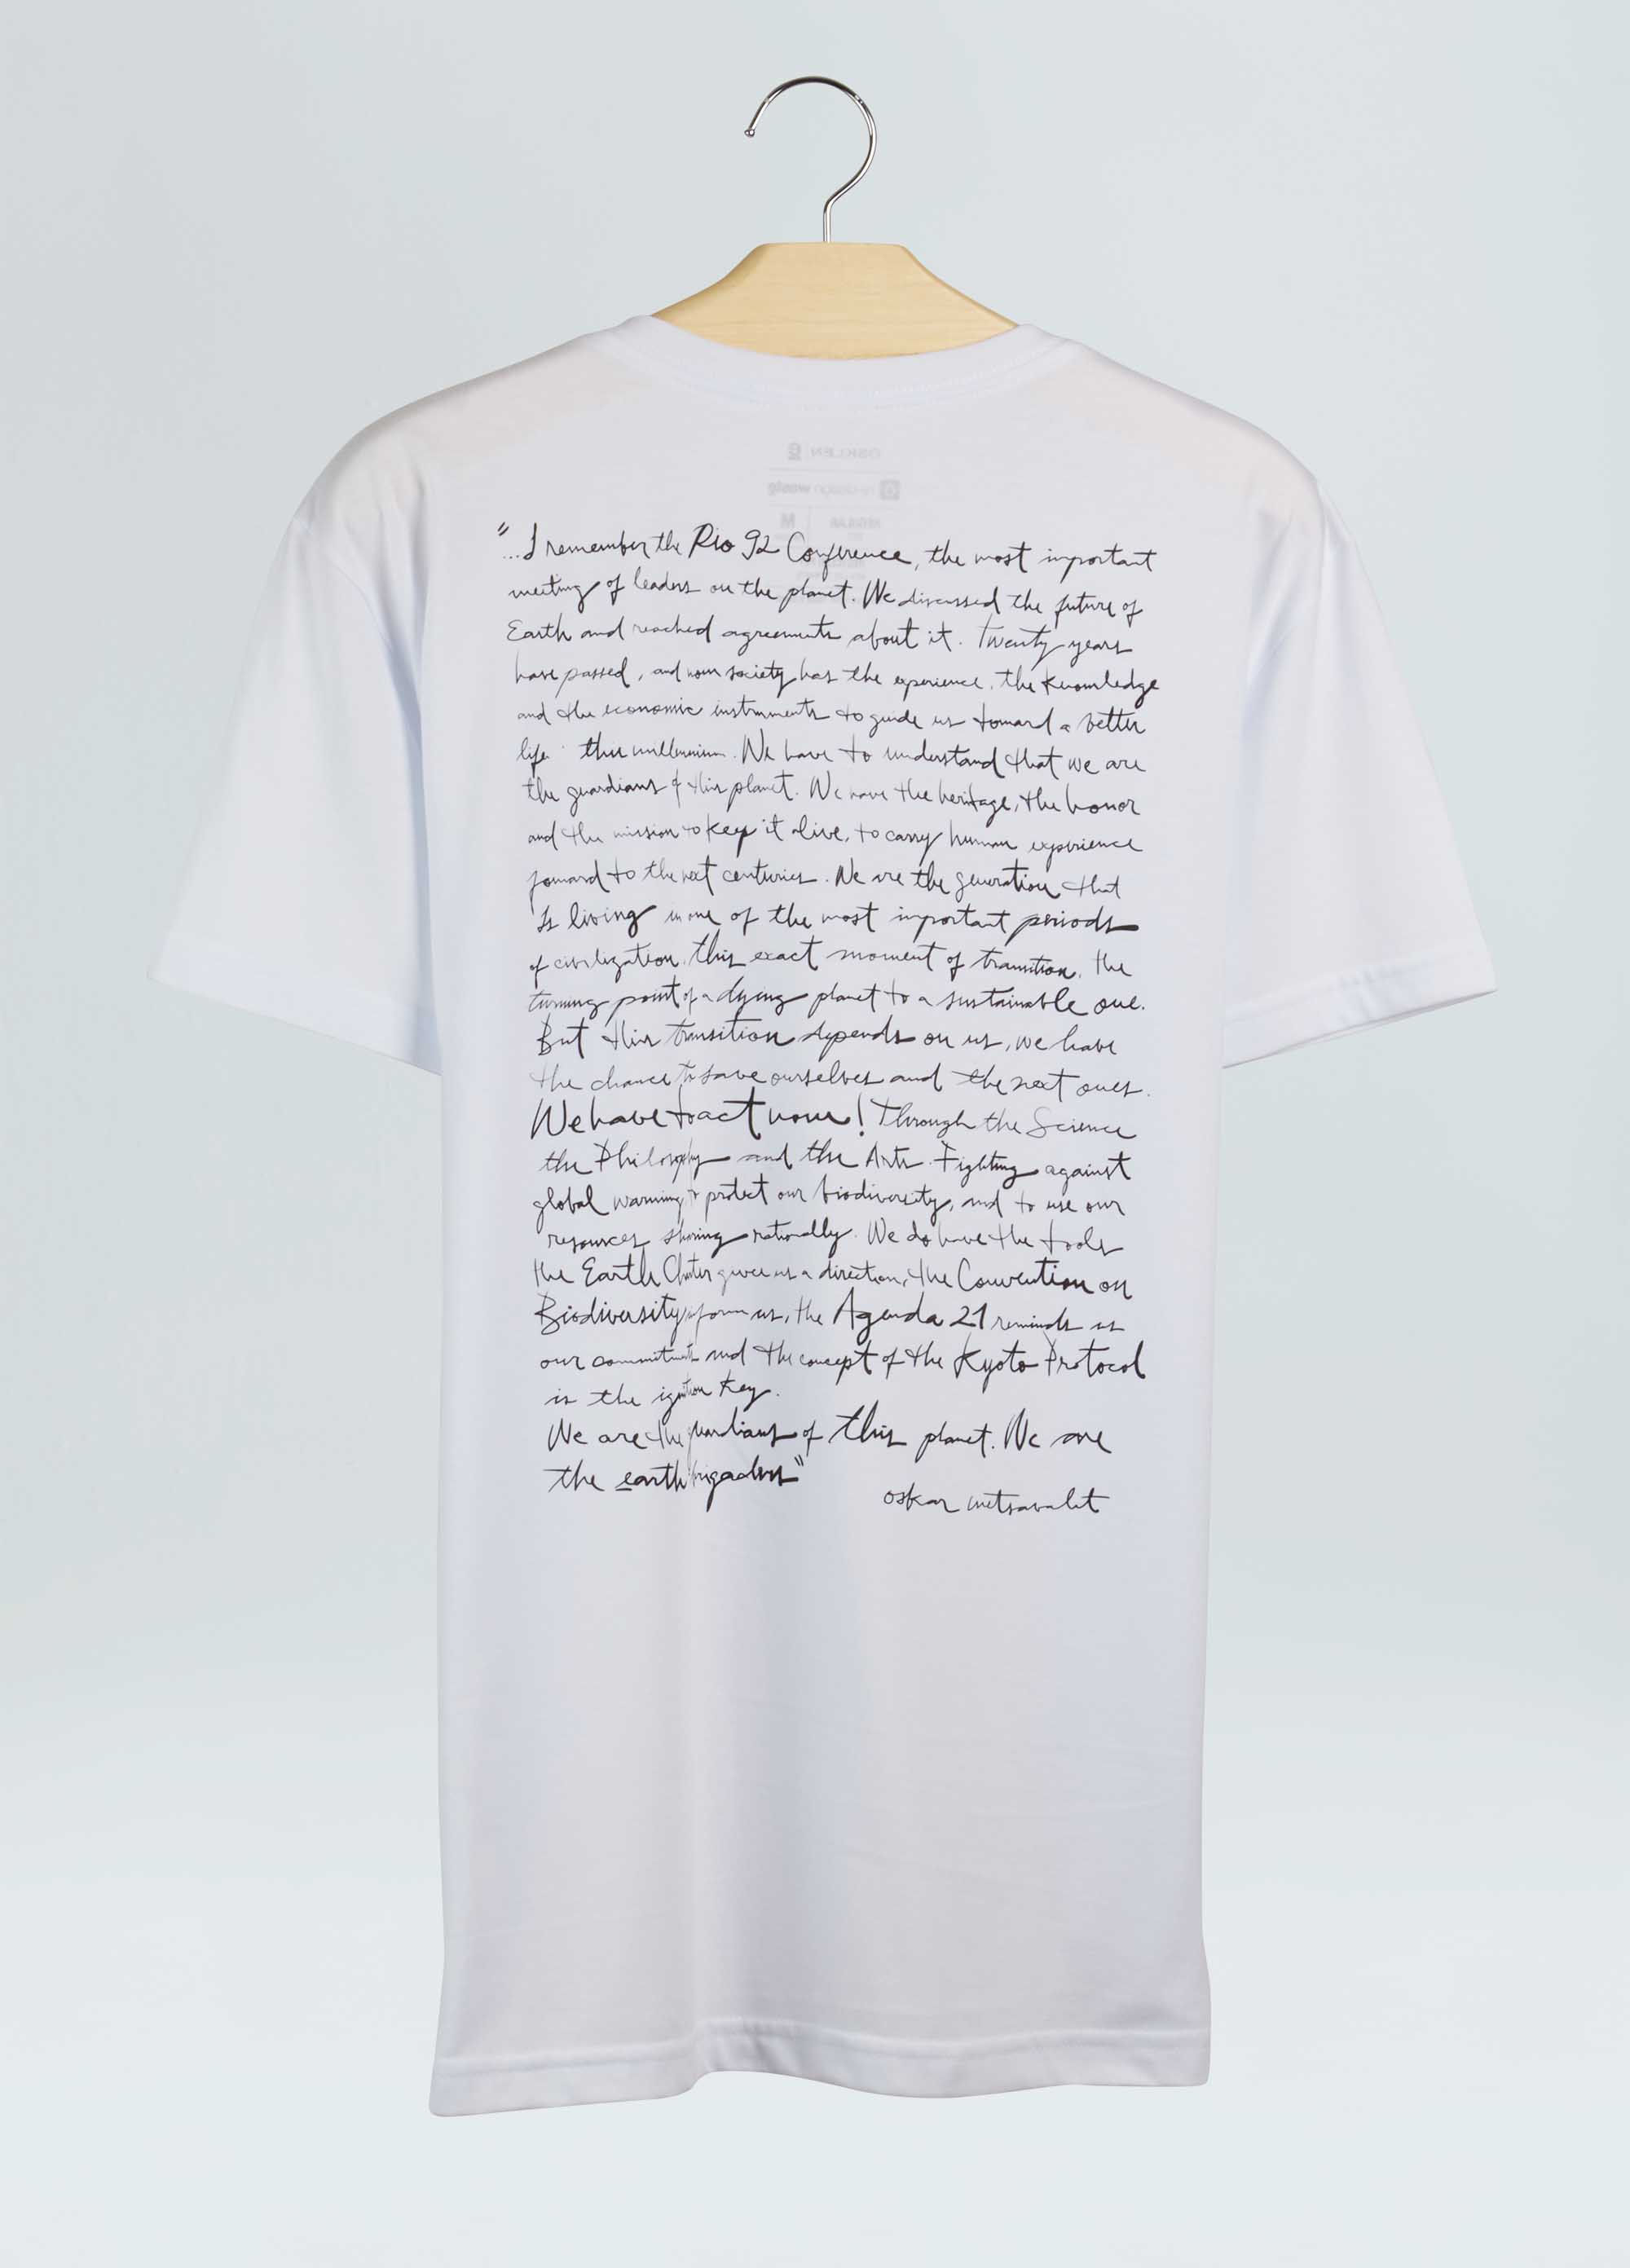 OSKLEN e
REGULAR M
"...I remember the Rio 92 Conference, the most important
meeting of leaders on the planet. We discussed the future of
Earth and reached agreements about it. Twenty years
have passed, and now society has the experience, the knowledge
and the economic instruments to guide us toward a better
life this millennium. We have to understand that we are
the guardians of this planet. We have the heritage, the honor
and the mission to keep it alive, to carry human experience
forward to the next centuries. We are the generation that
is living in one of the most important periods
of civilization, this exact moment of transition, the
turning point of a dying planet to a sustainable one.
But this transition depends on us, we have
the chance to save ourselves and the next ones.
We have to act now! Through the Science
the Philosophy and the Arts. Fighting against
global warming to protect our biodiversity, and to use our
resources sharing rationally. We do have the tools
the Earth Charter gives us a direction, the Convention on
Biodiversity inform us, the Agenda 21 reminds us
our commitments and the concept of the Kyoto Protocol
is the ignition key.
We are the guardians of this planet. We are
the earth brigaders"
oskar metsavaht